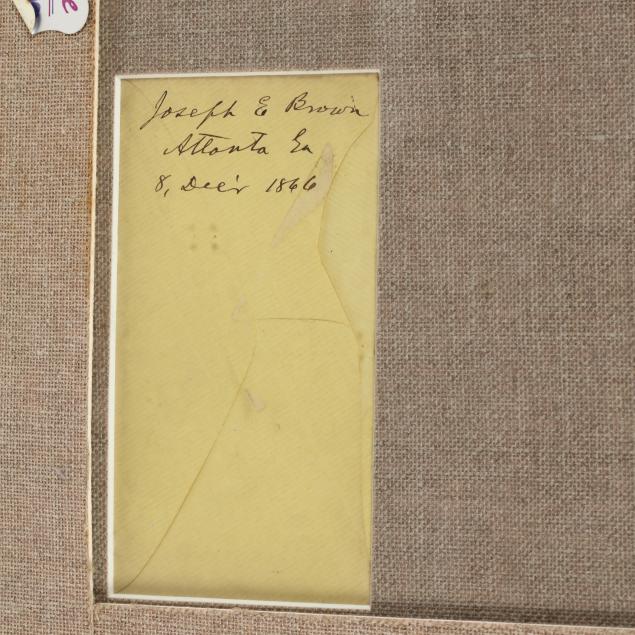 Joseph E Brown
Atlanta Ga
8, Dec'r 1866
e